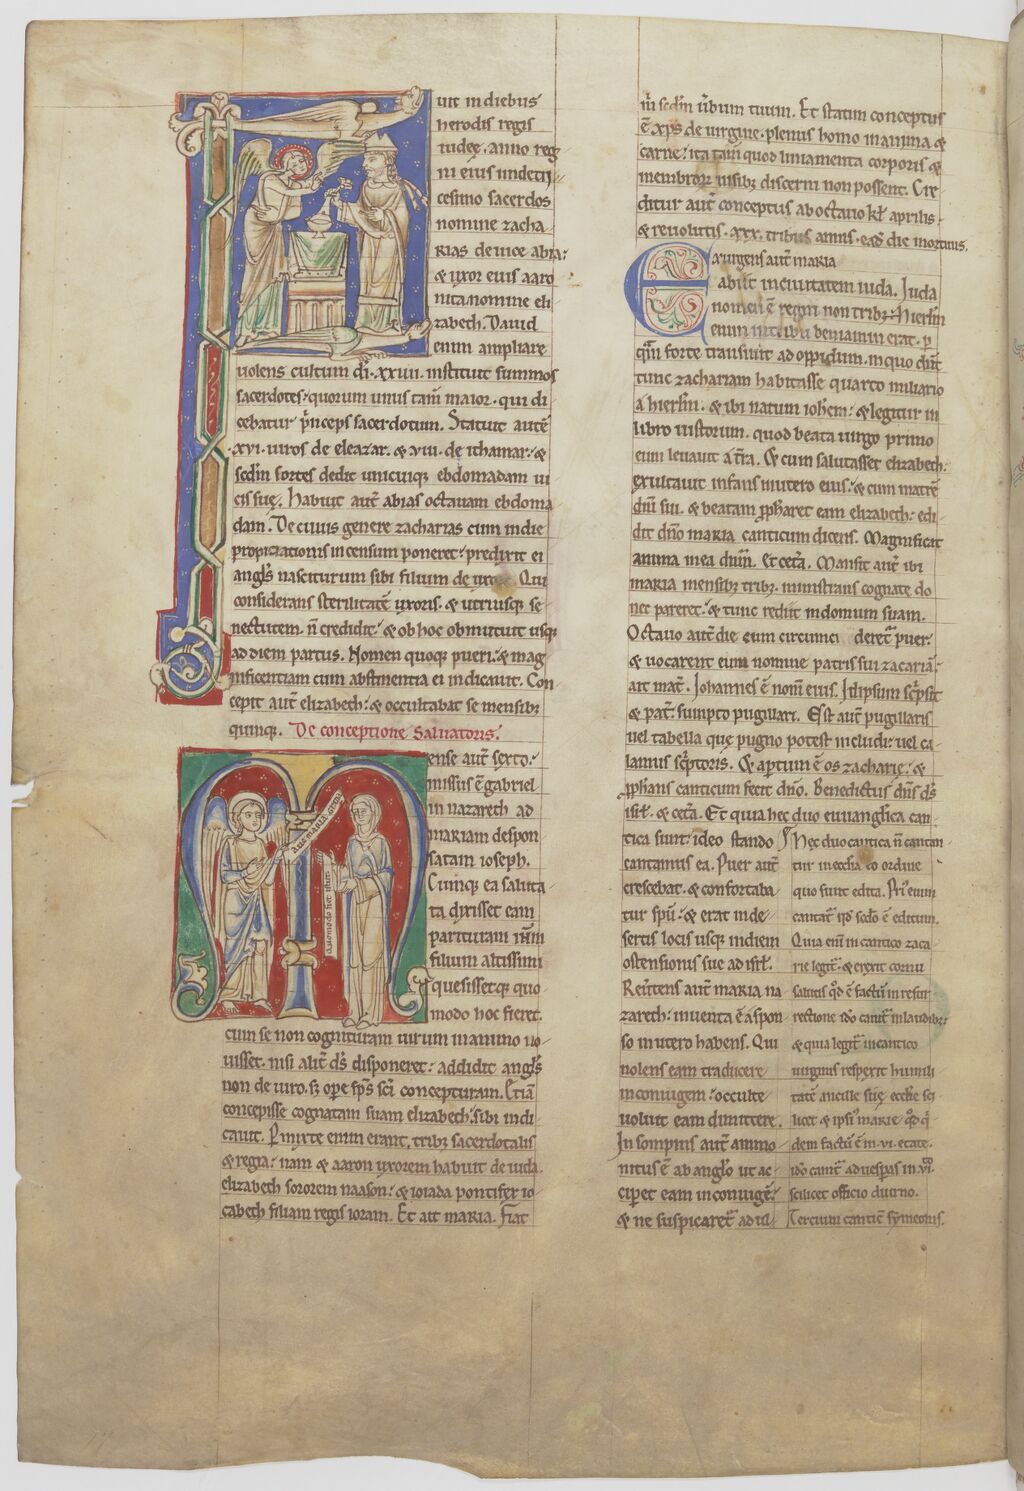 uit in diebus
herodis regis
iudeę. anno reg
ni eius undetri
cesimo sacerdos
nomine zacha
rias de uice abia:
& uxor eius aaro
nita nomine eli
zabeth. Dauid
enim ampliare
uolens cultum di. xxiiii. instituit summos
sacerdotes. quorum unus tam maior. qui di
cebatur p̄nceps sacerdotum. Statuit autē
.xvi. uiros de eleazar. & .viii. de ithamar. &
scdm sortes dedit unicuiq; ebdomadam ui
cis suę. Habuit aut abias octauam ebdoma
dam. De cuius genere zacharias cum in die
propiciationis incensum poneret. predixit ei
angl's nasciturum sibi filium de uxore. Qui
considerans sterilitatē uxoris. & utriusq; se
nectutem. n̄ credidit. & ob hoc obmutuit usq;
ad diem partus. Nomen quoq; pueri. & mag
nificentiam cum abstinentia ei indicauit. Con
cepit aut elizabeth. & occultabat se mensibz
quinq;. De conceptione Saluatoris.
ense aut sexto.
missus ē gabriel
in nazareth ad
mariam despon
satam ioseph.
Cumq; ea saluta
ta dixisset eam
parituram ihm
filium altissimi
quesissetq; quo
modo hoc fieret.
AVE MARIA
quomodo fiet istud
cum se non cognituram uirum in animo uo
uisset. nisi alit d's disponeret. addidit angl's
non de uiro. s; ope sps sci concepturam. Etiā
concepisse cognatam suam elizabeth. sibi indi
cauit. Pmixte enim erant. tribz sacerdotalis
& regia. nam & aaron uxorem habuit de iuda.
elizabeth sororem naason. & ioiada pontifex io
cabeth filiam regis ioram. Et ait maria. Fiat
m̄ scdm ūbum tuum. Et statim conceptus
ē xps de uirgine. plenus homo in anima &
carne. ita tam quod liniamenta corporis &
membror uisibz discerni non possent. Cre
ditur aut conceptus ab octauo kl aprilis.
& reuolutis .xxx. tribus annis. eadē die mortuus.
Exurgens aut maria
abiit in ciuitatem iuda. Iuda
nomen ē regni non tribz. Hierlm
enim in tribu beniamin erat. p
quam forte transiuit ad oppidum. in quo dnt
tunc zachariam habitasse quarto miliario
a hierlm. & ibi natum iohem. & legitur in
libro iustorum. quod beata uirgo primo
eum leuauit a tra. Et cum salutasset elizabeth.
exultauit infans in utero eius. & cum matrē
dni sui. & beatam pphraret eam elizabeth. edi
dit dno maria canticum dicens. Magnificat
anima mea dnm. Et ceta. Mansit aut ibi
maria mensibz tribz. ministrans cognate do
nec pareret. & tunc rediit in domum suam.
Octauo aut die cum circumci deret puer.
& uocarent eum nomine patris sui zacariā.
ait mat. Iohannes ē nom eius. Id ipsum scpsit
& pat. sumpto pugillari. Est aut pugillaris
uel tabella que pugno potest includi. uel ca
lamus scptoris. Et aptum ē os zacharię. &
pphans canticum fecit dno. Benedictus dns ds
isrl. & ceta. Et quia hec duo euuanglica can
tica sunt. ideo stando
cantamus ea. Puer aut
crescebat. & conforta
tur spu. & erat in de
sertis locis usq; in diem
ostensionis sue ad isrl.
Reūtens aut maria na
zareth. inuenta ē a spon
so in utero habens. Qui
nolens eam traducere
in coniugem. occulte
uoluit eam dimittere.
In sompnis aut ammo
nitus ē ab anglo ut ac
cipet eam in coniugē.
& ne suspicaret ad al
Hec duo cantica n̄ cantan
tur in ecclia eo ordine
quo sunt edita. Pri enim
cantat qd scdo ē editum.
Quia eni in cantico zaca
rie legit. & erexit cornu
salutis qd ē factū in resur
rectione ido cantat in laudibz.
& quia legit in cantico
uirginis respexit humili
tatē ancille suę
licet & ipsi marie qd
dem factū ē in .vi. etate.
ido cantat ad uesperas in
scilicet officio diurno.
Tercium canticū symeonis.